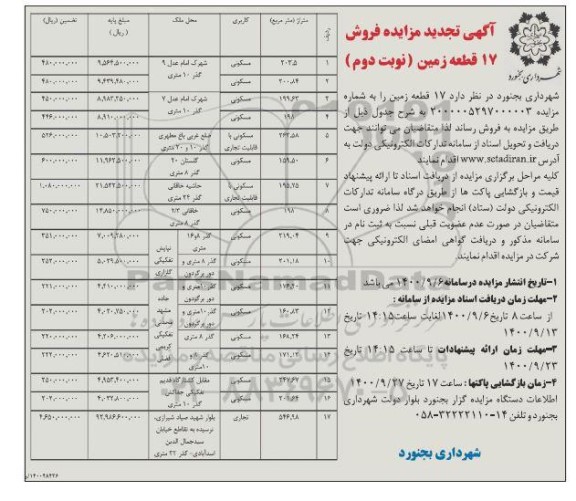 آگهی تجدید مزایده فروش
۱۷ قطعه زمین (نوبت دوم)
شهرداری بجنورد
شهرداری بجنورد در نظر دارد ۱۷ قطعه زمین را به شماره
مزایده ۲۰۰۰۰۰۵۲۹۷۰۰۰۰۰۳ به شرح جدول ذیل از
طریق مزایده به فروش رساند لذا متقاضیان می توانند جهت
دریافت و تحویل اسناد از سامانه تدارکات الکترونیکی دولت به
آدرس www.setadiran.ir اقدام نمایند.
کلیه مراحل برگزاری مزایده از دریافت اسناد تا ارائه پیشنهاد
قیمت و بازگشایی پاکت ها از طریق درگاه سامانه تدارکات
الکترونیکی دولت (ستاد) انجام خواهد شد لذا ضروری است
متقاضیان در صورت عدم عضویت قبلی نسبت به ثبت نام در
سامانه مذکور و دریافت گواهی امضای الکترونیکی جهت
شرکت در مزایده اقدام نمایند.
۱-تاریخ انتشار مزایده درسامانه ۱۴۰۰/۹/۶ می باشد
۲-مهلت زمان دریافت اسناد مزایده از سامانه :
از ساعت ۸ تاریخ ۱۴۰۰/۹/۶ لغایت ساعت ۱۴:۱۵ تاریخ
۱۴۰۰/۹/۱۳
۳-مهلت زمان ارائه پیشنهادات تا ساعت ۱۴:۱۵ تاریخ
۱۴۰۰/۹/۲۳
۴-زمان بازگشایی پاکتها : ساعت ۱۷ تاریخ ۱۴۰۰/۹/۲۷
اطلاعات دستگاه مزایده گزار بجنورد بلوار دولت شهرداری
بجنورد و تلفن ۱۴-۳۲۲۲۲۱۱۰-۰۵۸
شهرداری بجنورد
ردیف متراژ (متر مربع) کاربری محل ملک مبلغ پایه (ریال) تضمین (ریال)
۱ ۲۰۳,۵ مسکونی شهرک امام عدل ۹ ۹,۵۶۴,۵۰۰,۰۰۰ ۴۸۰,۰۰۰,۰۰۰
۲ ۲۰۰,۸۴ مسکونی گذر ۱۰ متری ۹,۶۳۹,۴۸۰,۰۰۰ ۴۸۰,۰۰۰,۰۰۰
۳ ۱۹۹,۶۳ مسکونی شهرک امام عدل ۷ ۸,۹۸۳,۲۵۰,۰۰۰ ۴۵۰,۰۰۰,۰۰۰
۴ ۱۹۸ مسکونی گذر ۱۰ متری ۸,۹۱۰,۰۰۰,۰۰۰ ۴۴۶,۰۰۰,۰۰۰
۵ ۲۶۲,۵۸ مسکونی با قابلیت تجاری ضلع غربی باغ مطهری گذر ۱۰ و ۲۰ متری ۱۰,۵۰۳,۲۰۰,۰۰۰ ۵۲۶,۰۰۰,۰۰۰
۶ ۱۵۹,۵۰ مسکونی گلستان ۲۰ گذر ۸ متری ۱۱,۹۶۲,۵۰۰,۰۰۰ ۶۰۰,۰۰۰,۰۰۰
۷ ۱۹۵,۷۵ مسکونی با قابلیت تجاری حاشیه خاقانی گذر ۲۴ متری ۲۱,۵۳۲,۵۰۰,۰۰۰ ۱,۰۸۰,۰۰۰,۰۰۰
۸ ۱۹۸ مسکونی خاقانی ۲/۳ گذر ۸ متری ۱۴,۸۵۰,۰۰۰,۰۰۰ ۷۵۰,۰۰۰,۰۰۰
۹ ۲۱۹,۰۴ مسکونی گذر ۸و۱۶ متری ۷,۰۰۹,۲۸۰,۰۰۰ ۳۵۱,۰۰۰,۰۰۰
۱۰ ۲۰۱,۱۸ مسکونی گذر ۸ متری و دور برگردون ۵,۰۲۹,۵۰۰,۰۰۰ ۲۵۲,۰۰۰,۰۰۰
۱۱ مسکونی دور برگردون ۲۲۱,۰۰۰,۰۰۰
۱۲ ۱۶۰,۸۳ مسکونی ۴,۰۲۰,۷۵۰,۰۰۰ ۲۰۲,۰۰۰,۰۰۰
۱۳ مسکونی گذر ۸ متری ۴,۲۰۶,۰۰۰,۰۰۰ ۲۲۰,۰۰۰,۰۰۰
۱۴ مسکونی ۲۳۲,۰۰۰,۰۰۰
۱۵ ۲۴۷,۶۷ مسکونی مقابل کشتارگاه قدیم ۴,۹۵۳,۴۰۰,۰۰۰ ۲۵۰,۰۰۰,۰۰۰
۱۶ مسکونی گذر ۱۰ متری ۲۰۲,۰۰۰,۰۰۰
۱۷ ۵۴۶,۹۸ تجاری بلوار شهید صیاد شیرازی، نرسیده به تقاطع خیابان سیدجمال الدین اسدآبادی- گذر ۳۲ متری ۹۲,۹۸۶,۶۰۰,۰۰۰ ۴,۶۵۰,۰۰۰,۰۰۰